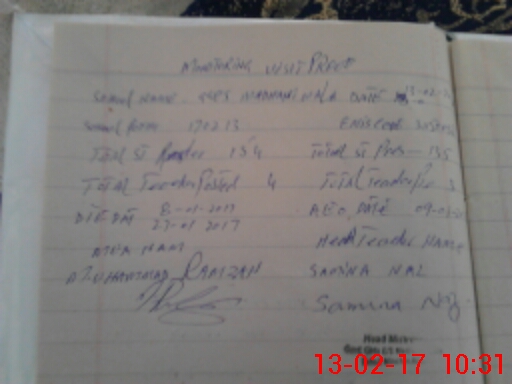 MONITORING VISIT PROOF
School NAME. GGPS MADHANI WALA DATE 13-02-
School form 170213 EMIS CODE
Total St Roster 154 Total St Pres - 135
Total Teacher Posted 4 Total Teacher Pre 3
DTE DAT 8-01-2017 A.E.O. DATE 09-01-
27-01 2017
MEA NAM Head Teacher NAME
MUHAMMAD RAMZAN SAMINA NAZ
Samina Naz
Head
Govt Girls
13-02-17 10:31